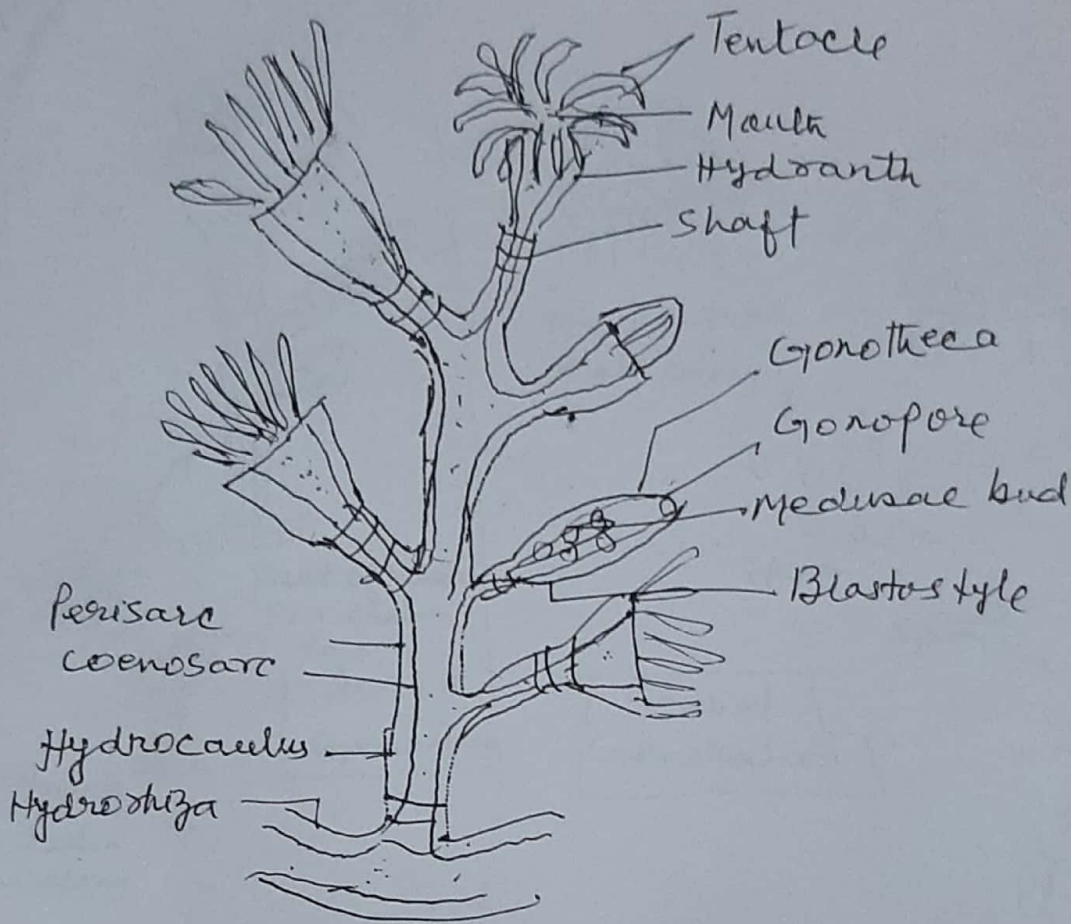 Tentacle
Mouth
Hydranth
Shaft
Gonotheca
Gonopore
Medusae bud
Blastostyle
Perisarc
Coenosarc
Hydrocaulus
Hydrorhiza